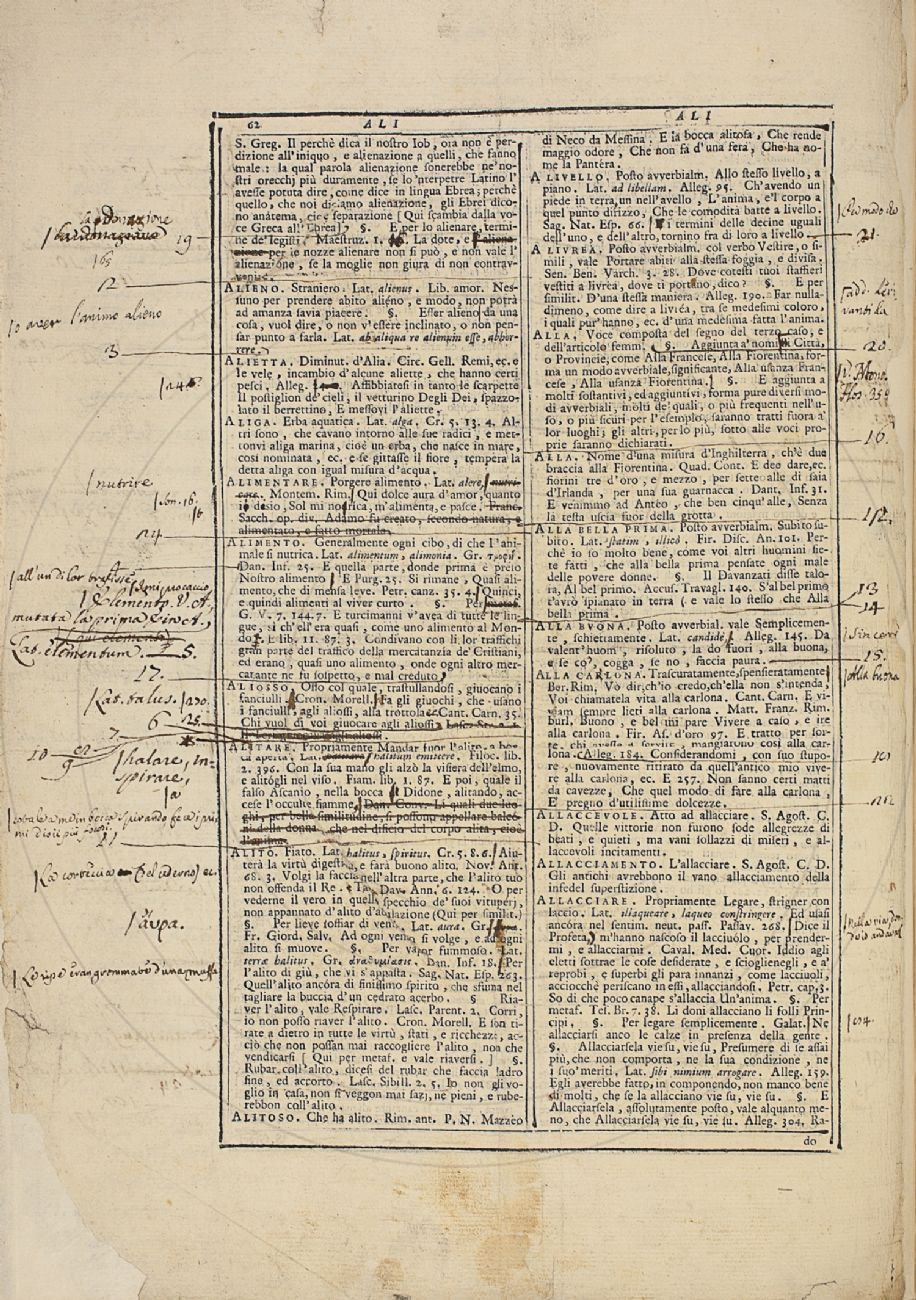 62 ALI
S. Greg. Il perchè dica il nostro Iob, ora non è per-
dizione all'iniquo, e alienazione a quelli, che fanno
male: la qual parola alienazione sonerebbe ne' no-
stri orecchj più duramente, se lo 'nterpetre Latino l'
avesse potuta dire, come dice in lingua Ebrea; perchè
quello, che noi diciamo alienazione, gli Ebrei dico-
no anátema, cioè separazione [Qui scambia dalla vo-
ce Greca all'Ebrea] §. E per lo alienare, termi-
ne de' legisti. Maestruz. 1. La dote, e
per le nozze alienare non si può, e non vale l'
alienazione, se la moglie non giura di non contrav-
venire.
ALIENO. Straniero. Lat. alienus. Lib. amor. Nes-
suno per prendere abito alieno, e modo, non potrà
ad amanza savia piacere. §. Esser alieno da una
cosa, vuol dire, o non v'essere inclinato, o non pen-
sar punto a farla. Lat. ab aliqua re alienum esse, abhor-
rere.
ALIETTA. Diminut. d'Alia. Circ. Gell. Remi, ec. e
le vele, incambio d'alcune aliette, che hanno certi
pesci. Alleg. Affibbiatesi in tanto le scarpette
Il postiglion de' cieli, il vetturino Degli Dei, spazzo-
lato il berrettino, E messovi l'aliette.
ALIGA. Erba aquatica. Lat. alga. Cr. 5. 13. 4. Al-
tri sono, che cavano intorno alle sue radici, e met-
tonvi aliga marina, cioè un'erba, che nasce in mare,
così nominata, ec. e se gittasse il fiore, tempera la
detta aliga con igual misura d'acqua.
ALIMENTARE. Porgere alimento. Lat. alere, nutri-
care. Montem. Rim. Qui dolce aura d'amor, quanto
io desio, Sol mi nodrica, m'alimenta, e pasce. Franc.
Sacch. op. div. Adamo fu creato, secondo natura, e
alimentato, e fatto mortale.
ALIMENTO. Generalmente ogni cibo, di che l'ani-
male si nutrica. Lat. alimentum, alimonia. Gr. τροφή.
Dan. Inf. 25. E quella parte, donde prima è preso
Nostro alimento. E Purg. 25. Si rimane, Quasi ali-
mento, che di mensa leve. Petr. canz. 35. 4. Quinci,
e quindi alimenti al viver curto. §. Per
G. V. 7. 144. 7. E turcimanni v'avea di tutte le lin-
gue, sì ch'ell'era quasi, come uno alimento al Mon-
do. E lib. 11. 87. 3. Condivano con li lor traffichi
gran parte del traffico della mercatanzia de' Cristiani,
ed erano, quasi uno alimento, onde ogni altro mer-
catante ne fu sospetto, e mal creduto.
ALIOSSO. Osso col quale, trastullandosi, giuocano i
fanciulli. Cron. Morell. Fa gli giuochi, che usano
i fanciulli, agli aliossi, alla trottola. Cant. Carn. 35.
Chi vuol di voi giuocare agli aliossi.
ALITARE. Propriamente Mandar fuor l'alito a boc-
ca aperta. Lat. halitum emittere. Filoc. lib.
2. 396. Con la sua mano gli alzò la visiera dell'elmo,
alitògli nel viso. Fiam. lib. 1. 87. E poi, quale il
falso Ascanio, nella bocca di Didone, alitando, ac-
cese l'occulte fiamme. Dan. Conv. Li quali due luo-
ghi, per bella similitudine, si possono appellare balco-
ni della donna, che nel dificio del corpo alita, cioè
l'anima.
ALITO. Fiato. Lat. halitus, spiritus. Cr. 5. 8. 6. Aiu-
terà la virtù digesta, e farà buono alito. Nov. Ant.
68. 3. Volgi la faccia nell'altra parte, che l'alito tuo
non offenda il Re. Tac. Dav. Ann. 6. 124. O per
vederne il vero in quello specchio de' suoi vituperj,
non appannato d'alito d'adulazione (Qui per similit.)
§. Per lieve soffiar di vento. Lat. aura. Gr.
Fr. Giord. Salv. Ad ogni vento si volge, e ad ogni
alito si muove. §. Per vapor fummoso. Lat.
terræ halitus. Gr. ἀναθυμίασις. Dan. Inf. 28. Per
l'alito di giù, che vi s'appasta. Sag. Nat. Esp. 263.
Quell'alito ancóra di finissimo spirito, che sfuma nel
tagliare la buccia d'un cedrato acerbo. § Ria-
ver l'alito, vale Respirare. Lasc. Parent. 2. Corri,
io non posso riaver l'alito. Cron. Morell. E son ti-
rate a dietro in tutte le virtù, stati, e ricchezze, ac-
ciò che non possan mai raccogliere l'alito, non che
vendicarsi [Qui per metaf. e vale riaversi.] §.
Rubar coll'alito, dicesi del rubar che faccia ladro
fine, ed accorto. Lasc. Sibill. 2. 5. Io non gli vo-
glio in casa, non si veggon mai sazj, ne pieni, e rube-
rebbon coll'alito.
ALITOSO. Che ha alito. Rim. ant. P. N. Mazzèo
ALI
di Neco da Messina. E la bocca alitosa, Che rende
maggio odore, Che non fa d'una fera, Che ha no-
me la Pantèra.
A LIVELLO. Posto avverbialm. Allo stesso livello, a
piano. Lat. ad libellam. Alleg. 95. Ch'avendo un
piede in terra, un nell'avello, L'anima, e'l corpo a
quel punto disfizzo, Che le comodità batte a livello.
Sag. Nat. Esp. 66. i termini delle decine uguali
dell'uno, e dell'altro, tornino fra di loro a livello
A LIVREA. Posto avverbialm. col verbo Vestire, o si-
mili, vale Portare abiti alla stessa foggia, e divisa.
Sen. Ben. Varch. 3. 28. Dove cotesti tuoi staffieri
vestiti a livrea, dove ti portano, dico? §. E per
similit. D'una stessa maniera. Alleg. 190. Far nulla-
dimeno, come dire a livréa, tra se medesimi coloro,
i quali pur hanno, ec. d'una medesima fatta l'anima.
ALLA, Voce composta del segno del terzo caso, e
dell'articolo femm. §. Aggiunta a' nomi di Città,
o Provincie, come Alla Francese, Alla Fiorentina, for-
ma un modo avverbiale, significante, Alla usanza Fran-
cese, Alla usanza Fiorentina. §. E aggiunta a
molti sostantivi, ed aggiuntivi, forma pure diversi mo-
di avverbiali, molti de' quali, o più frequenti nell'u-
so, o più sicuri per l'esemplo, saranno tratti fuora a'
lor luoghi; gli altri, per lo più, sotto alle voci pro-
prie saranno dichiarati.
ALLA. Nome d'una misura d'Inghilterra, ch'è due
braccia alla Fiorentina. Quad. Cont. E deo dare, ec.
fiorini tre d'oro, e mezzo, per sette alle di saia
d'Irlanda, per una sua guarnacca. Dant. Inf. 31.
E venimmo ad Antéo, che ben cinqu'alle, Senza
la testa uscia fuor della grotta.
ALLA BELLA PRIMA. Posto avverbialm. Subito su-
bito. Lat. statim, illicò. Fir. Disc. An. 101. Per-
chè io so molto bene, come voi altri huomini sie-
te fatti, che alla bella prima pensate ogni male
delle povere donne. §. Il Davanzati disse talo-
ra, Al bel primo. Accus. Travagl. 140. S'al bel primo
t'avrò spianato in terra (e vale lo stesso che Alla
bella prima.
ALLA BUONA. Posto avverbial. vale Semplicemen-
te, schiettamente. Lat. candidè. Alleg. 145. Da
valent'huom, risoluto, la do fuori, alla buona,
e se cò, cogga, se no, faccia paura.
ALLA CARLONA. Trascuratamente, spensieratamente
Ber. Rim. Vo dir, ch'io credo, ch'ella non s'intenda,
Voi chiamatela vita alla carlona. Cant. Carn. E vi-
viam sempre lieti alla carlona. Matt. Franz. Rim.
burl. Buono, e bel mi pare Vivere a caso, e ire
alla carlona. Fir. As. d'oro 97. E tratto per sor-
te, chi avesse a servire, mangiarono così alla car-
lona. Alleg. 184. Considerandomi, con suo stupo-
re, nuovamente ritirato da quell'antico mio vive-
re alla carlona, ec. E 257. Non fanno certi matti
da cavezze, Che quel modo di fare alla carlona,
E pregno d'utilissime dolcezze.
ALLACCEVOLE. Atto ad allacciare. S. Agost. C.
D. Quelle vittorie non furono sode allegrezze di
beati, e quieti, ma vani sollazzi di miseri, e al-
laccevoli incitamenti.
ALLACCIAMENTO. L'allacciare. S. Agost. C. D.
Gli antichi avrebbono il vano allacciamento della
infedel superstizione.
ALLACCIARE. Propriamente Legare, strigner con
laccio. Lat. illaqueare, laqueo constringere. Ed usasi
ancóra nel sentim. neut. pass. Passav. 268. Dice il
Profeta, m'hanno nascoso il lacciuólo, per prender-
mi, e allacciarmi. Caval. Med. Cuor. Iddio agli
eletti sottrae le cose desiderate, e scioglienegli, e a'
reprobi, e superbi gli para innanzi, come lacciuoli,
acciocchè periscano in essi, allacciandosi. Petr. cap. 3.
So di che poco canape s'allaccia Un'anima. §. Per
metaf. Tes. Br. 7. 38. Li doni allacciano li folli Prin-
cipi. §. Per legare semplicemente. Galat. Ne
allacciarsi anco le calze in presenza della gente.
§. Allacciarsela vie su, vie su, Presumere di se assai
più, che non comporta, ne la sua condizione, ne
i suo' meriti. Lat. sibi nimium arrogare. Alleg. 159.
Egli averebbe fatto, in componendo, non manco bene
di molti, che se la allacciano vie su, vie su. §. E
Allacciarsela, assolutamente posto, vale alquanto me-
no, che Allacciarsela vie su, vie su. Alleg. 304. Ra-
do
la donazione
19
165
12
o aver l'animo alieno
13
nutrire
24
Elemento. V. A.
mutata la prima
Lat. elementum. 5.
17.
Lat. talus.
6 25.
7
8
10
9
halare, in-
spirare,
27
αὔρα.
21.
20.
16.
12.
13
14
15.
alla buona